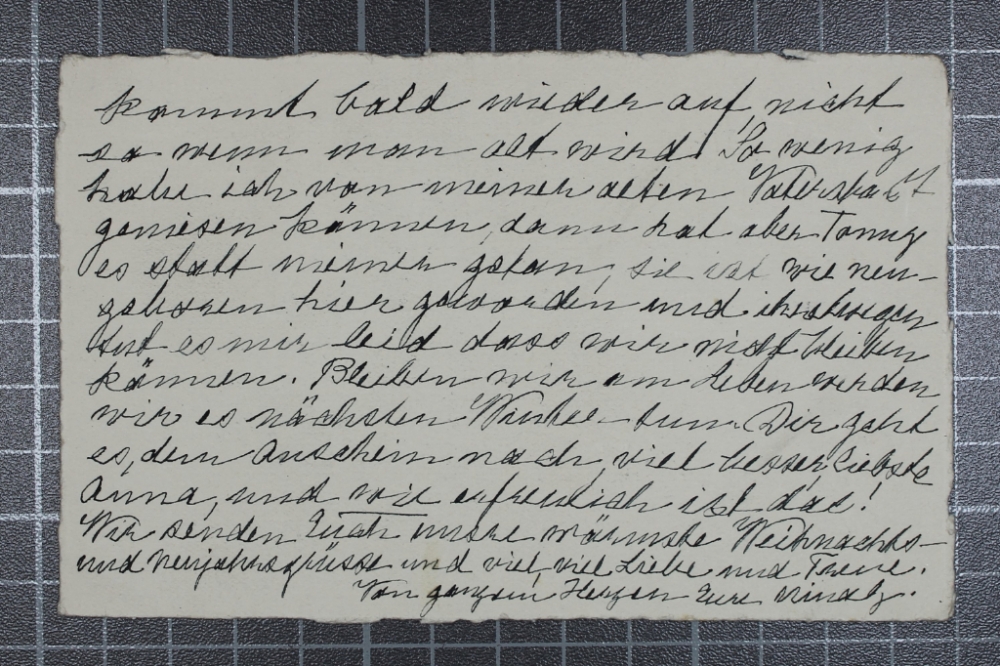 kommt bald wieder auf, nicht
so wenn man alt wird. So wenig
habe ich von meiner alten Vaterstadt
geniesen können, dann hat aber Tonny
es statt meiner getan, sie ist wie neu-
geboren hier geworden und ihretwegen
tut es mir leid dass wir nicht bleiben
können. Bleiben wir am Leben werden
wir es nächsten Winter tun. Dir geht
es, dem Anschein nach, viel besser, liebste
Anna, und wie erfreulich ist das!
Wir senden Euch unsre wärmste Weihnachts-
und Neujahrsgrüsse und viel, viel Liebe und Treue.
Von ganzem Herzen Eure